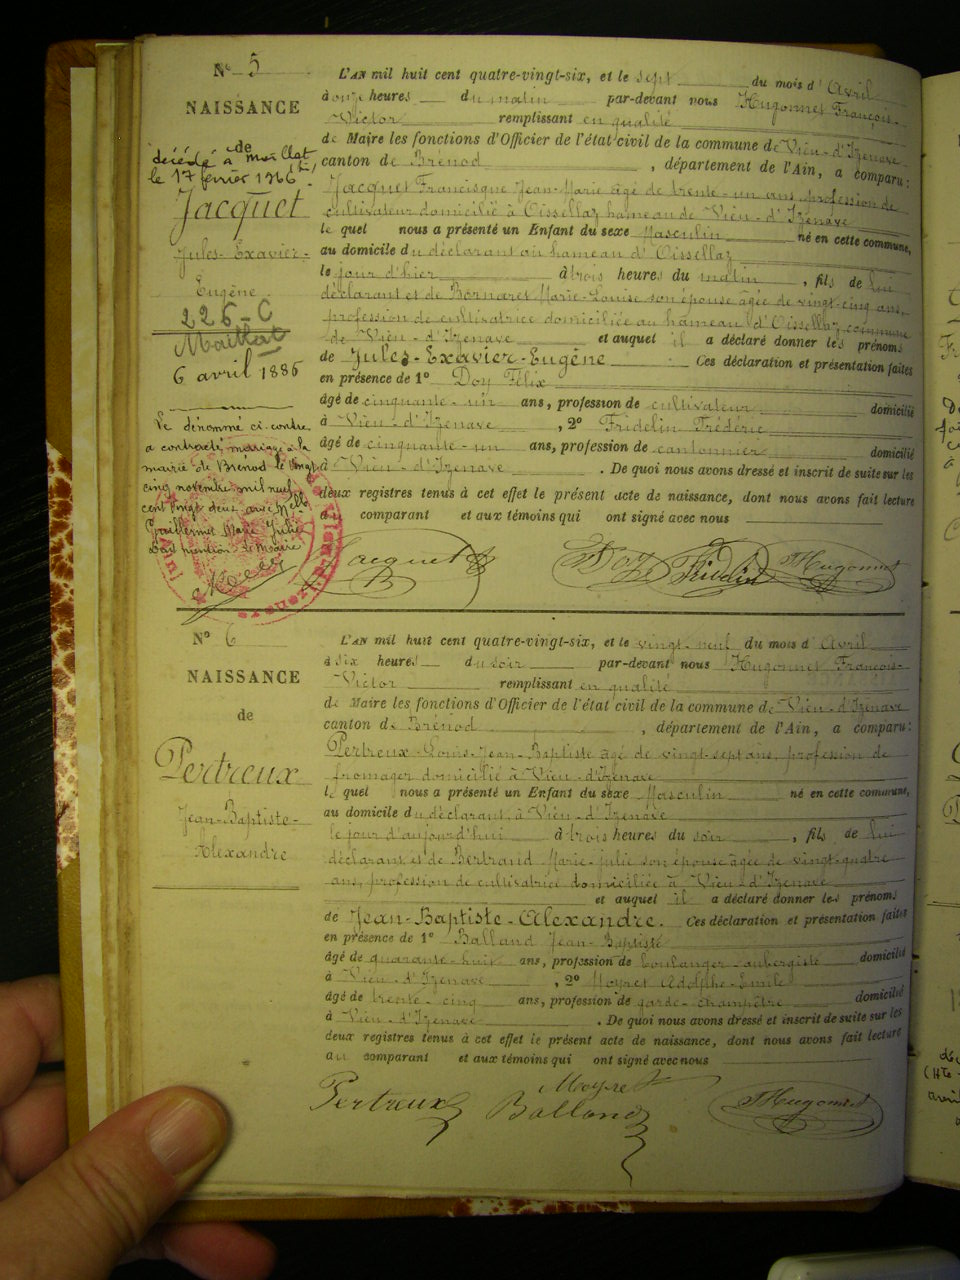 N° 5
NAISSANCE
de
décédé à Maillat
le 17 février 1966
Jacquet
Jules-Exavier-
Eugène
226-C
Maillat
6 avril 1886
Le dénommé ci-contre
a contracté mariage à la
mairie de Brénod le vingt
cinq novembre mil neuf
cent vingt deux avec Melle
Guillermet Marie Julie
dont mention Le Maire
L'AN mil huit cent quatre-vingt-six, et le sept du mois d'Avril
à onze heures du matin par-devant nous Hugonnet François-
Victor remplissant en qualité
de Maire les fonctions d'Officier de l'état civil de la commune de Vieu-d'Izenave
canton de Brénod, département de l'Ain, a comparu:
Jacquet Francisque Jean-Marie âgé de trente-un ans, profession de
cultivateur domicilié à Oissellaz hameau de Vieu-d'Izenave
le quel nous a présenté un Enfant du sexe Masculin né en cette commune,
au domicile du déclarant au hameau d'Oissellaz
le jour d'hier à trois heures du matin, fils de lui
déclarant et de Bornaret Marie-Louise son épouse âgée de vingt-cinq ans,
profession de cultivatrice domiciliée au hameau d'Oissellaz commune
de Vieu-d'Izenave et auquel il a déclaré donner les prénoms
de Jules-Exavier-Eugène Ces déclaration et présentation faites
en présence de 1° Doy Félix
âgé de cinquante-un ans, profession de cultivateur domicilié
à Vieu-d'Izenave, 2° Fridelin Frédéric
âgé de cinquante-un ans, profession de cantonnier domicilié
à Vieu-d'Izenave. De quoi nous avons dressé et inscrit de suite sur les
deux registres tenus à cet effet le présent acte de naissance, dont nous avons fait lecture
au comparant et aux témoins qui ont signé avec nous
Jacquet Doy Fridelin Hugonnet
N° 6
NAISSANCE
de
Pertreux
Jean-Baptiste-
Alexandre
L'AN mil huit cent quatre-vingt-six, et le vingt-neuf du mois d'Avril
à six heures du soir par-devant nous Hugonnet François-
Victor remplissant en qualité
de Maire les fonctions d'Officier de l'état civil de la commune de Vieu-d'Izenave
canton de Brénod, département de l'Ain, a comparu:
Pertreux Louis-Jean-Baptiste âgé de vingt-sept ans, profession de
fromager domicilié à Vieu-d'Izenave
le quel nous a présenté un Enfant du sexe Masculin né en cette commune,
au domicile du déclarant à Vieu-d'Izenave
le jour d'aujourd'hui à trois heures du soir, fils de lui
déclarant et de Bertrand Marie-julie son épouse âgée de vingt-quatre
ans, profession de cultivatrice domiciliée à Vieu-d'Izenave
et auquel il a déclaré donner les prénoms
de Jean-Baptiste-Alexandre. Ces déclaration et présentation faites
en présence de 1° Balland Jean-Baptiste
âgé de quarante-huit ans, profession de boulanger-aubergiste domicilié
à Vieu-d'Izenave, 2° Moyret Adolphe-Emile
âgé de trente-cinq ans, profession de garde-champêtre domicilié
à Vieu-d'Izenave. De quoi nous avons dressé et inscrit de suite sur les
deux registres tenus à cet effet le présent acte de naissance, dont nous avons fait lecture
au comparant et aux témoins qui ont signé avec nous
Pertreux Balland Moyret Hugonnet